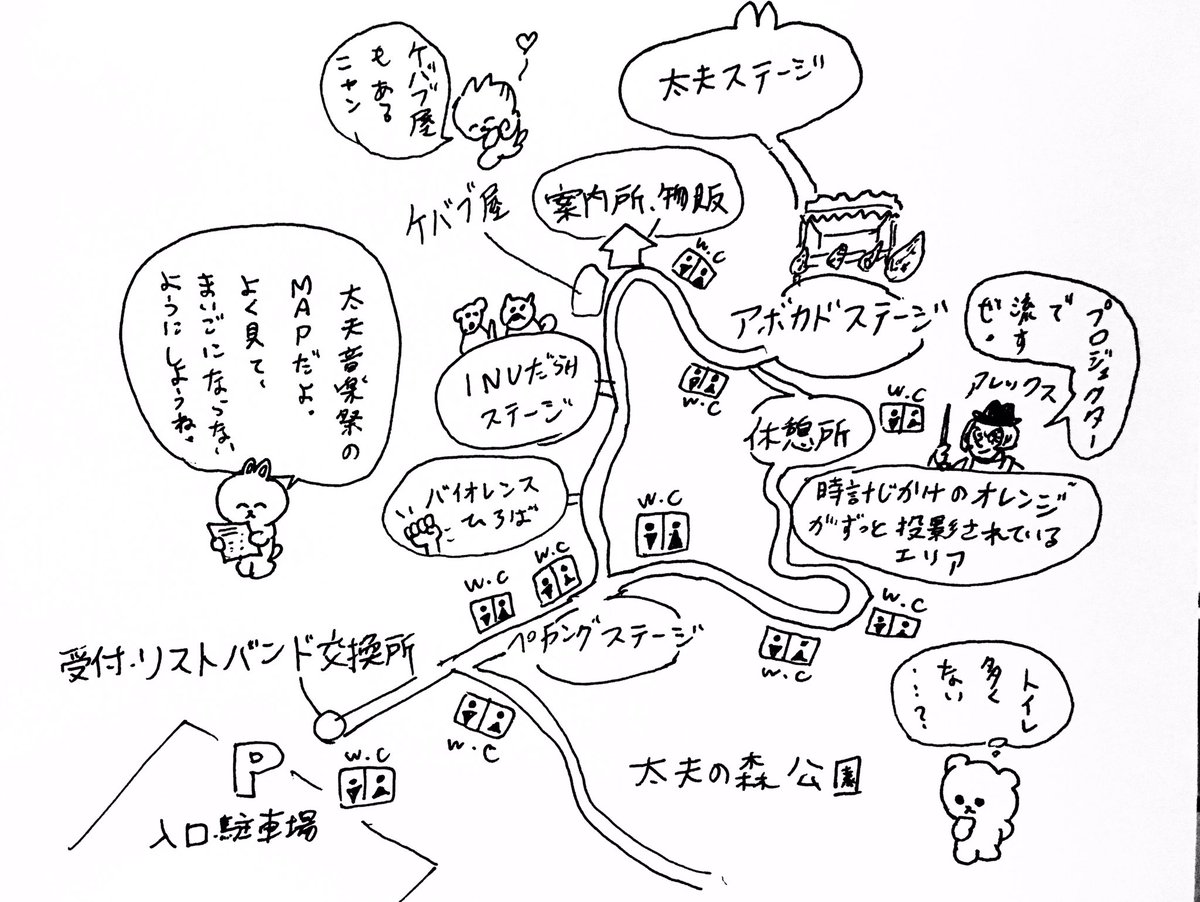 ケバブ屋
もある
ニャン
太夫ステージ
案内所、物販
ケバブ屋
W.C
太夫音楽祭の
MAPだよ。
よく見て、
まいごにならない
ようにしようね。
アボカドステージ
プロジェクター
で
流す
ぜ。
アレックス
INUだらけ
ステージ
W.C
W.C
休憩所
バイオレンス
ひろば
W.C
時計じかけのオレンジ
がずっと投影されている
エリア
W.C
W.C
W.C
W.C
受付・リストバンド交換所
ペカングステージ
W.C
W.C
W.C
P
入口駐車場
太夫の森公園
トイレ
多く
ない
…?